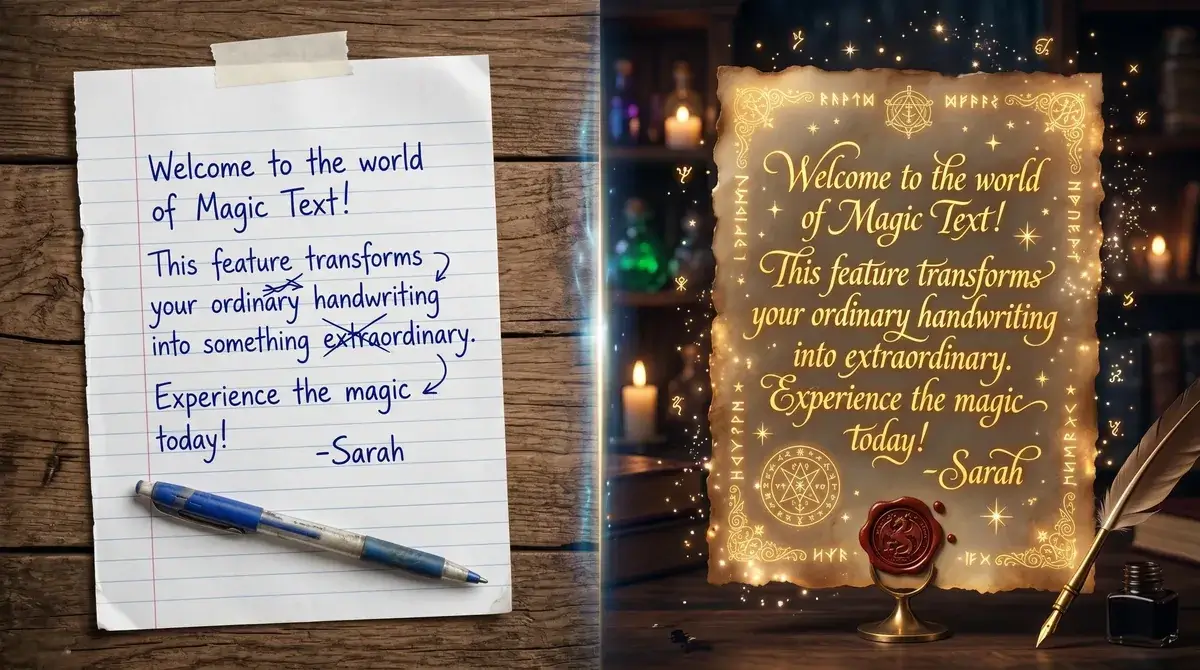 Welcome to the world
of Magic Text!
This feature transforms
your ordinary handwriting
into something extraordinary.
Experience the magic
today!
-Sarah
Welcome to the world
of Magic Text!
This feature transforms
your ordinary handwriting
into extraordinary.
Experience the magic
today!
-Sarah